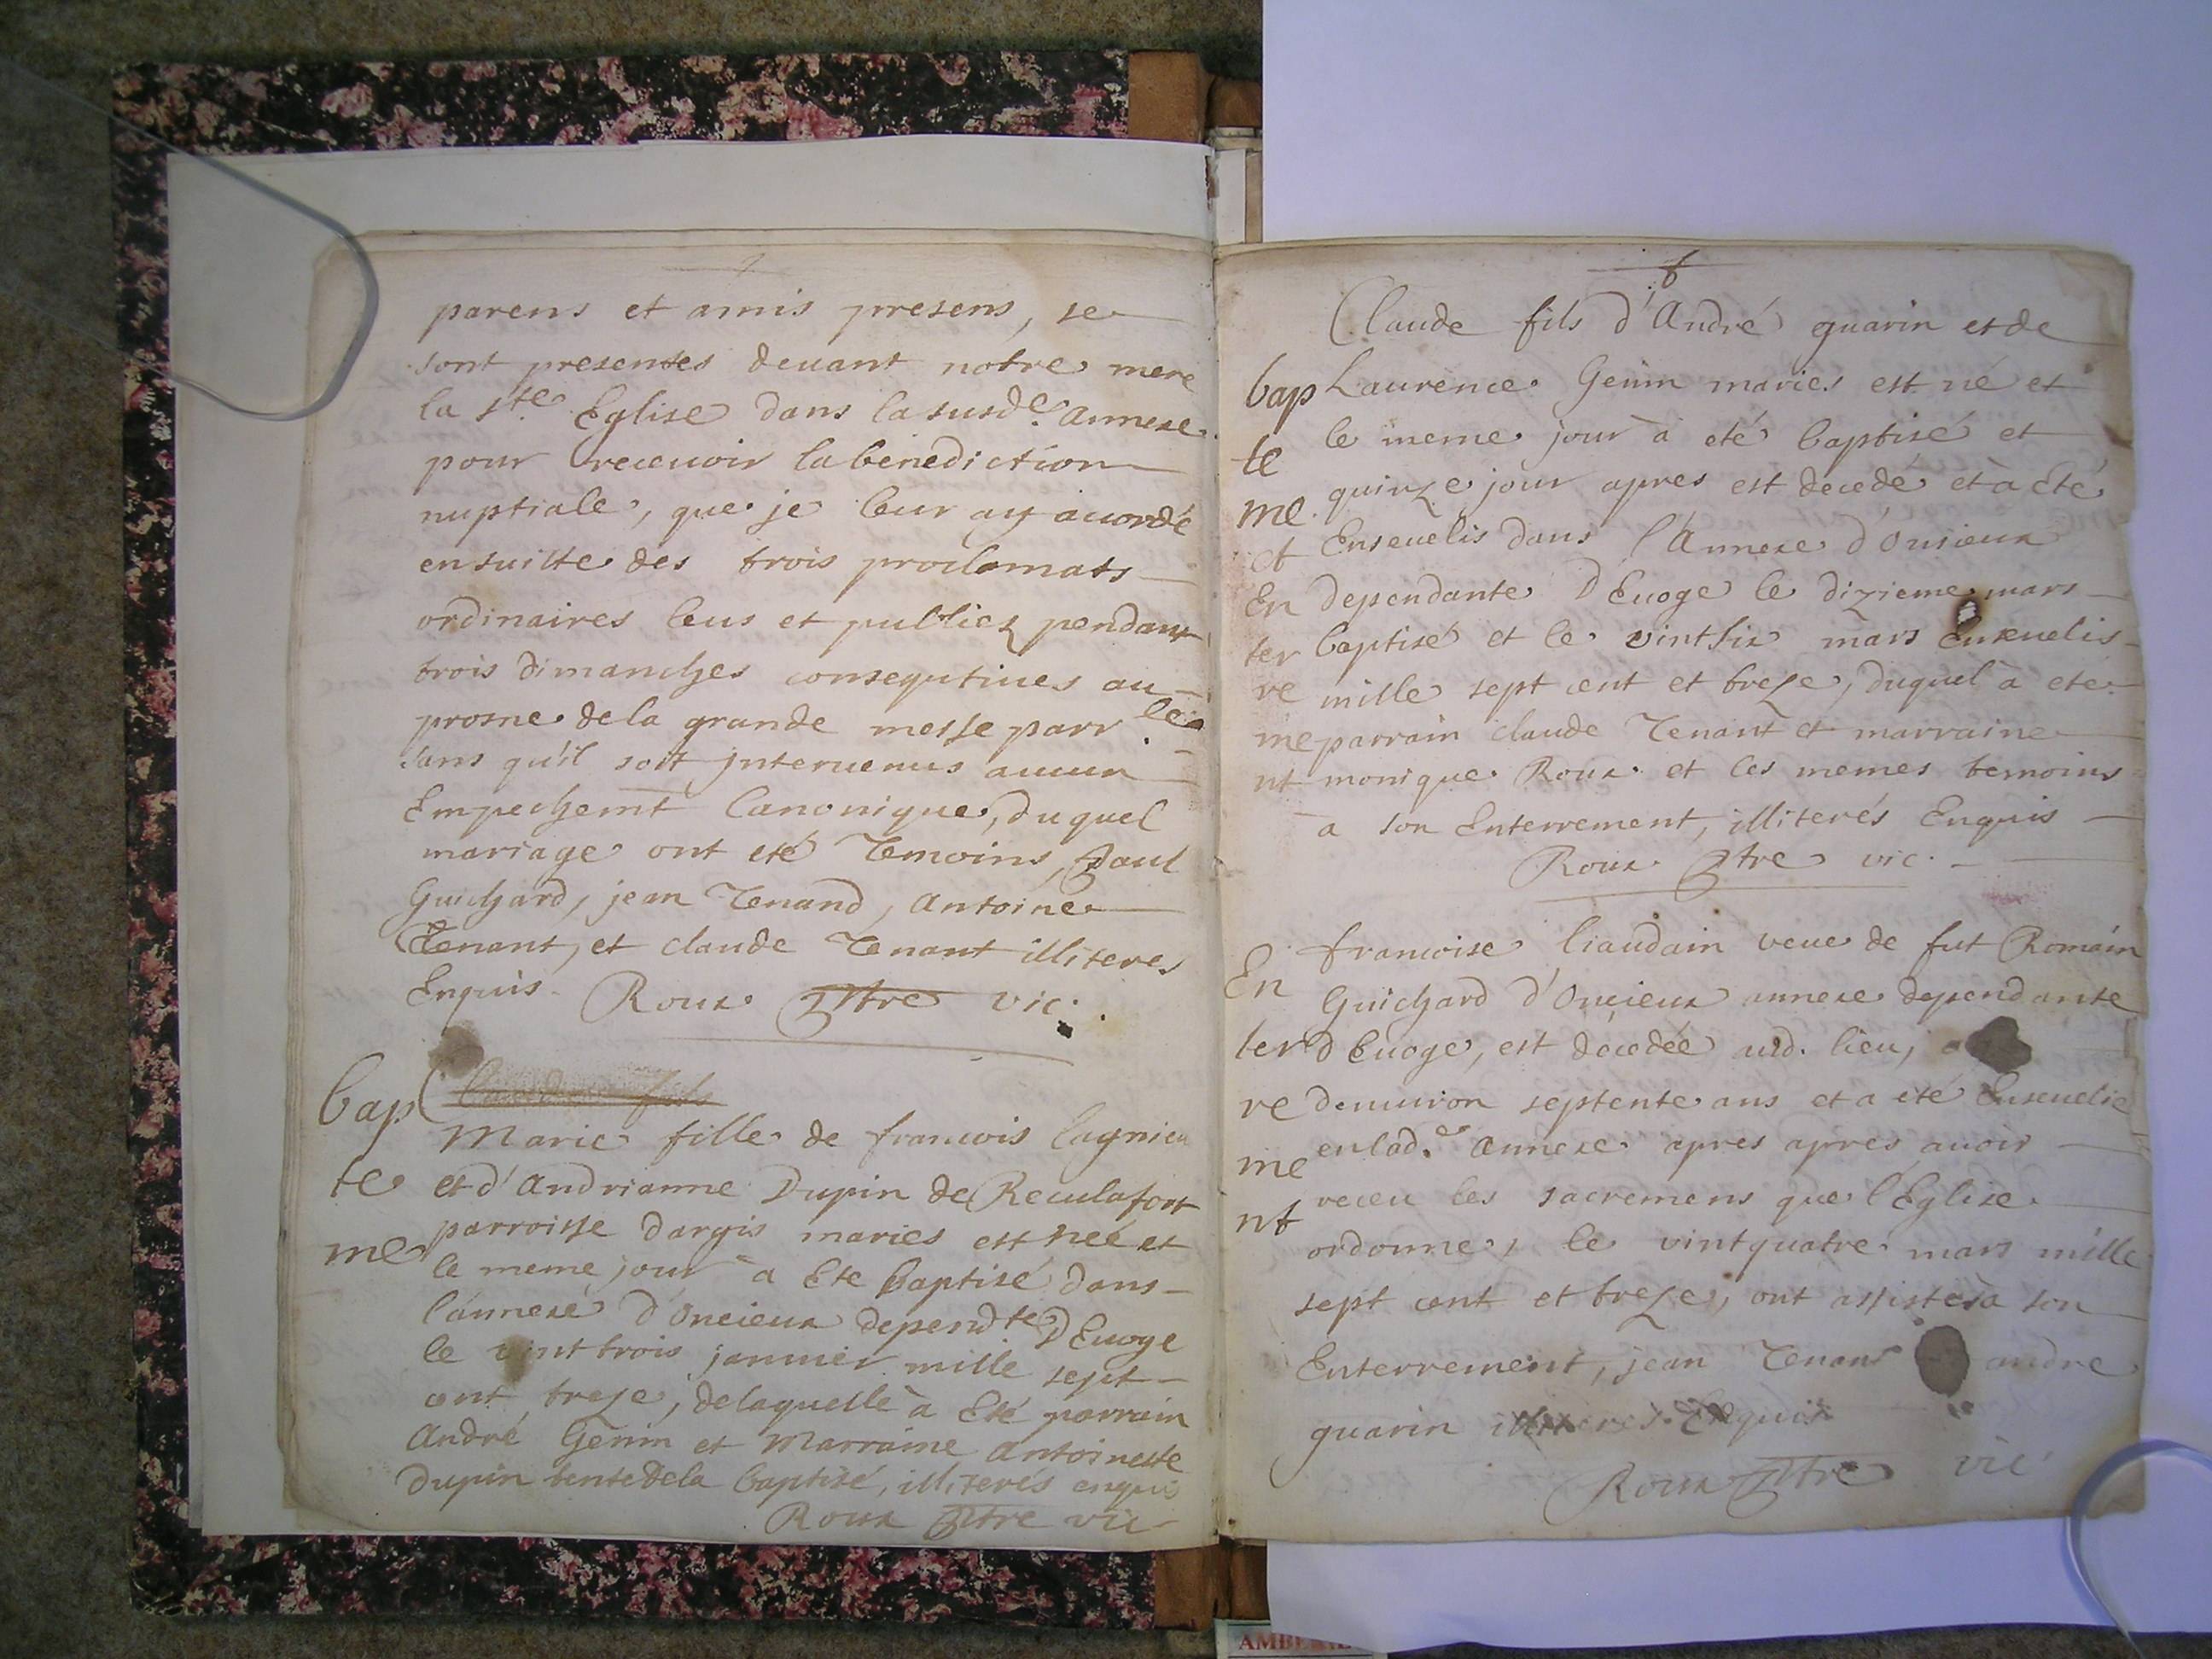 parens et amis presens, se
sont presentes deuant notre mere
la Ste. Eglise dans la susde. annexe
pour receuoir la benediction
nuptiale, que je leur ay acordé
ensuitte des trois proclamats
ordinaires leus et publiez pendant
trois dimanches consequtiues au
prosne de la grande messe parr.le
sans qu'il soit jnteruenus aucun
Empechemt Canonique, duquel
mariage ont eté Temoins, Paul
Guichard, jean Tenand, Antoine
Tenant, et claude Tenant illiteres
Enquis. Roux Ptre vic.
Bap
te
me
fils
Marie fille de francois lagnieu
et d'Andrianne Dupin de Reculafort
parroisse dargis maries est neé et
le meme jour a Ete baptisé dans
l'annexe d'Oncieux dependte D'Euoge
le vint trois januier mille sept
cent treze, delaquelle à Eté parrain
André Genin et Marraine Antoinette
Dupin tente de la baptisé, illiterés enquis
Roux Ptre vic
6
Claude fils d'André guarin et de
bap
te
me
et
En
ter
re
me
nt
Laurence Genin maries est né et
le meme jour à eté baptisé et
quinze jour apres est decedé et à Eté
Enseuelis dans l'Annexe d'Onsieux
dependante D'Euoge le dizieme mars
baptisé et le vint six mars Enseuelis
mille sept cent et treze, duquel à ete
parrain claude Tenant et marraine
monique Roux et les memes temoins
a son Enterrement, illiterés Enquis
Roux Ptre vic.
En
ter
re
me
nt
francoise liaudain veue de fut Romain
Guichard d'Oncieux annexe dependante
d'Euoge, est décedée aud. lieu,
denuiron septente ans et a eté Enseuelie
en lad.e annexe apres apres auoir
receu les sacremens que l'Eglise
ordonne, le vint quatre mars mille
sept cent et treze, ont assistés à son
Enterrement, jean Tenant andre
guarin illiteres Enquis
Roux Ptre vic
AMBER